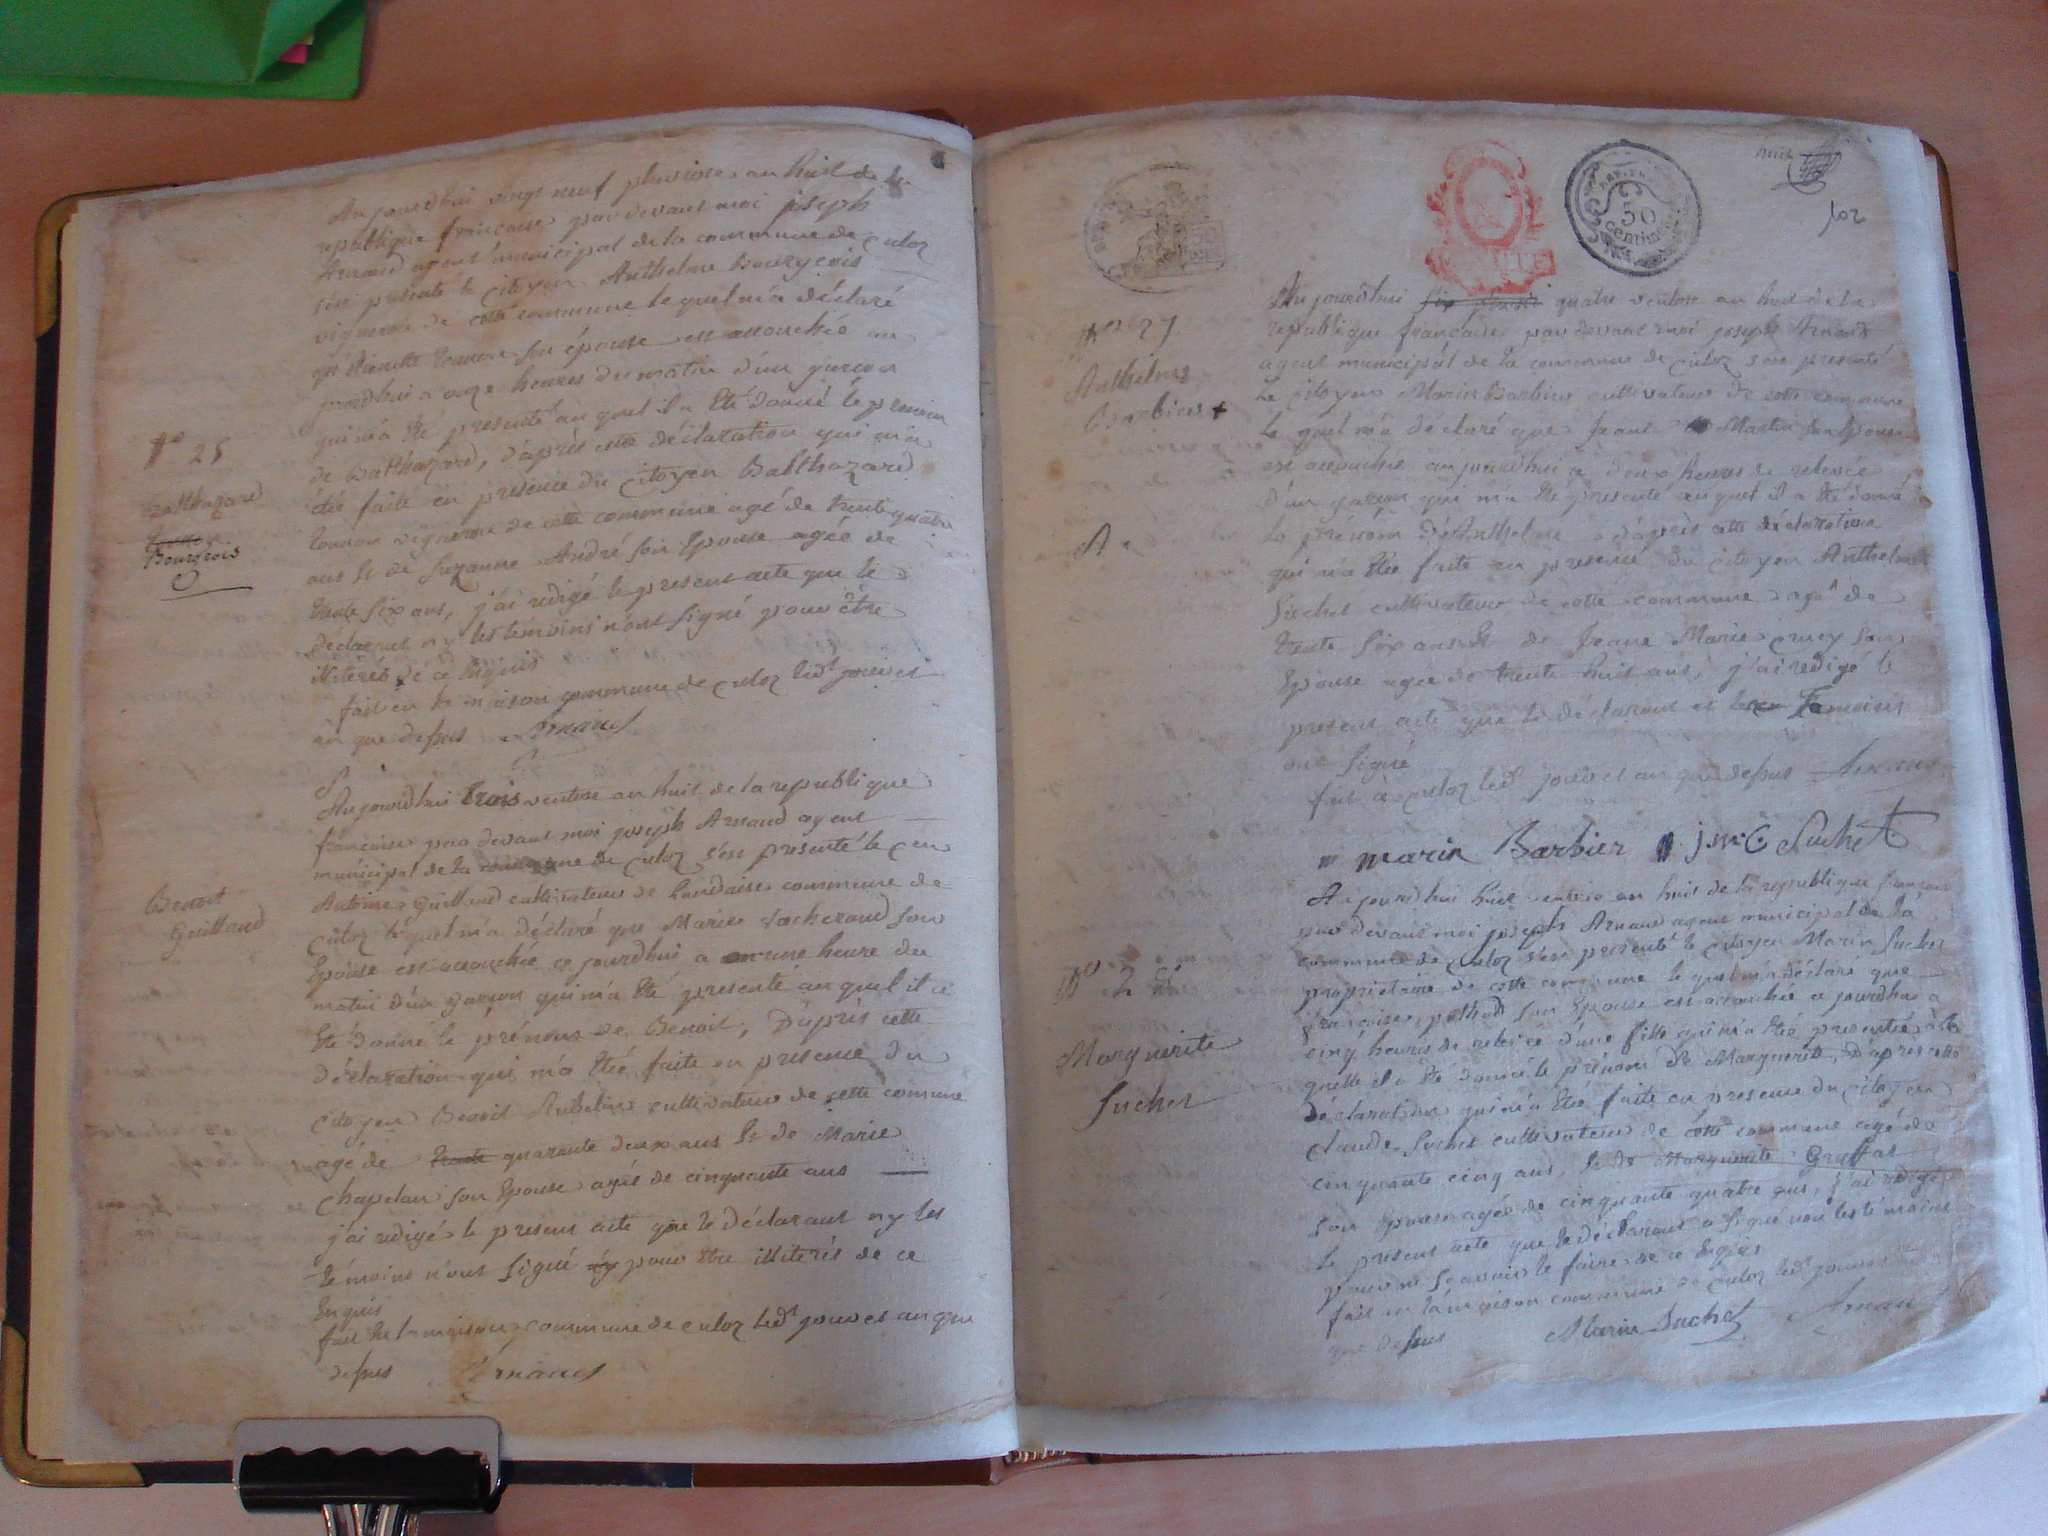 Aujourdhui vingt neuf pluviose an huit de la
republique francaise par devant moi joseph
Arnaud agent municipal de la commune de culoz
s'est présenté le citoyen Anthelme Bourgeois
vigneron de cette commune le quel m'a déclaré
son épouse est accouchée au
jourdhui a onze heures du matin d'un garçon
qui m'a été présenté au quel il a été donné le prenom
de Balthazard, d'après cette déclaration qui m'a
étée faite en présence du citoyen Balthazard
vigneron de cette commune agé de trente quatre
ans et de Suzanne André son Epouse agée de
trente six ans, j'ai redigé le present acte que le
declarant ny les temoins n'ont signé pour être
illiterés de ce enquis
fait en la maison commune de culoz led^t jour et
an que dessus Arnaud
N° 25
Balthazard
Bourgeois
Aujourdhui trois ventose an huit de la republique
francaise par devant moi joseph Arnaud agent
municipal de la commune de culoz s'est presenté le cen
Antoine Guilland cultivateur de Landaise commune de
culoz lequel m'a déclaré que Marie son
Epouse est accouchée ce jourdhui a une heure du
matin d'un garçon qui m'a été presenté au quel il a
été donné le prénom de Benoit, D'après cette
déclaration qui m'a étée faite en presence du
citoyen Benoit Aubelin cultivateur de cette comune
agé de trente quarante deux ans et de Marie
Chapelan son Epouse agée de cinquante ans
j'ai redigé le present acte que le déclarant ny les
témoins n'ont signé ny pour être illiterés de ce
Enquis
fait en la maison commune de culoz led^t jour et an que
dessus Arnaud
Benoit
Guilland
huit
102
50
centimes
Aujourdhui quatre ventose an huit de la
republique francaise par devant moi joseph Arnaud
agent municipal de la commune de culoz s'est presenté
Le citoyen Marin Barbier cultivateur de cette commune
Le quel m'a déclaré que Jeane Martin son Epouse
est accouchée aujourdhui a deux heures de relevée
d'un garçon qui m'a été presenté au quel il a été donné
Le prénom d'Anthelme d'après cette déclaration
qui m'a étée faite en presence du citoyen Anthelme
Suchet cultivateur de cette commune agé de
trente six ans et de Jeane Marie cruey son
Epouse agée de trente huit ans, j'ai redigé le
present acte que le déclarant et les temoins
ont signé
fait à culoz led^t jour et an que dessus Arnaud
marin Barbier j.m.C Suchet
N° 27
Anthelme
Barbier +
A
Aujourdhui huit ventose an huit de la republique francaise
par devant moi joseph Arnaud agent municipal de la
commune de culoz s'est presenté le citoyen Marin Suchet
propriétaire de cette commune le quel m'a déclaré que
françoise son Epouse est accouchée ce jourdhui a
cinq heures de relevée d'une fille qui m'a étée presentée à la
quelle il a été donné le prénom de Marguerite, D'après cette
déclaration qui m'a étée faite en presence du citoyen
Claude Suchet cultivateur de cette commune agé de
cinquante cinq ans, et de Marguerite Gruffat
son Epouse agée de cinquante quatre ans, j'ai redigé
le present acte que le déclarant a signé non les témoins
pour ne sçavoir le faire de ce Enquis
fait en la maison commune de culoz led^t jour et an
que dessus Marin Suchet Arnaud
N° 28
Marguerite
Suchet